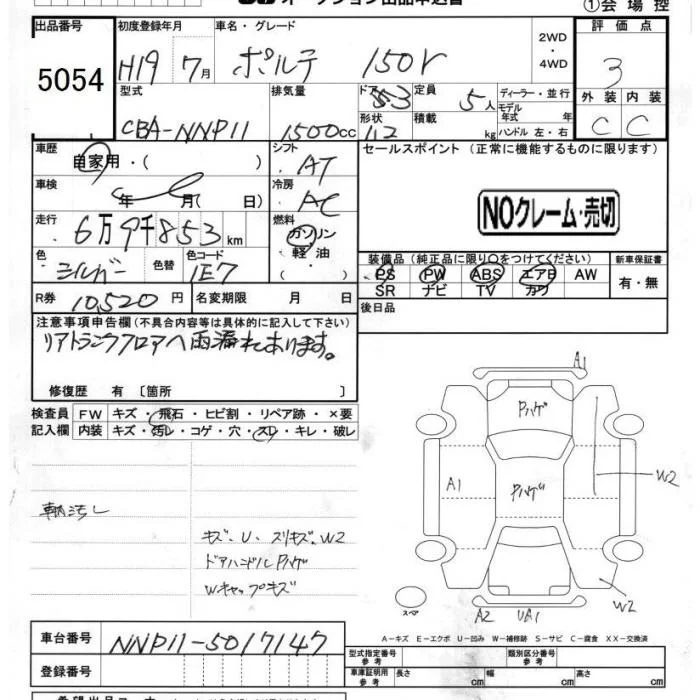 オークション出品申込書
①会場控
出品番号 5054
初度登録年月 H19 7月
車名・グレード ポルテ 150r
2WD・4WD
評価点 3
型式 CBA-NNP11
排気量 1500cc
ドア 53
形状
定員 5人
積載 kg
ディーラー・並行
モデル年式 年式
ハンドル 左・右
外装 C 内装 C
車歴 自家用・( )
シフト AT
セールスポイント (正常に機能するものに限ります)
車検 年 月( 日)
冷房 AC
NOクレーム・売切
走行 6万9千853km
燃料 ガソリン・軽油・( )
色 シルバー 色替
色コード 1E7
装備品 (純正品に限り○をつけてください)
新車保証書
PS PW ABS エアB AW
SR ナビ TV カワ
有・無
R券 10,520円 名変期限 月 日
後日品
注意事項申告欄 (不具合内容等は具体的に記入して下さい)
リアトランクフロアヘ雨漏れあります。
修復歴 有 〔箇所 〕
検査員記入欄
FW キズ・飛石・ヒビ割・リペア跡・×要
内装 キズ・汚レ・コゲ・穴・スレ・キレ・破レ
A1
Pハゲ
A1
Pハゲ
W2
W2
スペア
A2 UA1
キズ・U・スリキズ・W2
ドアハンドルPハゲ
Wキャップキズ
A-キズ E-エクボ U-凹み W-補修跡 S-サビ C-腐食 XX-交換済
車台番号 NNP11-5017147
登録番号
型式指定番号 参考
類別区分番号 参考
車庫証明用 参考 長さ cm 幅 cm 高さ cm